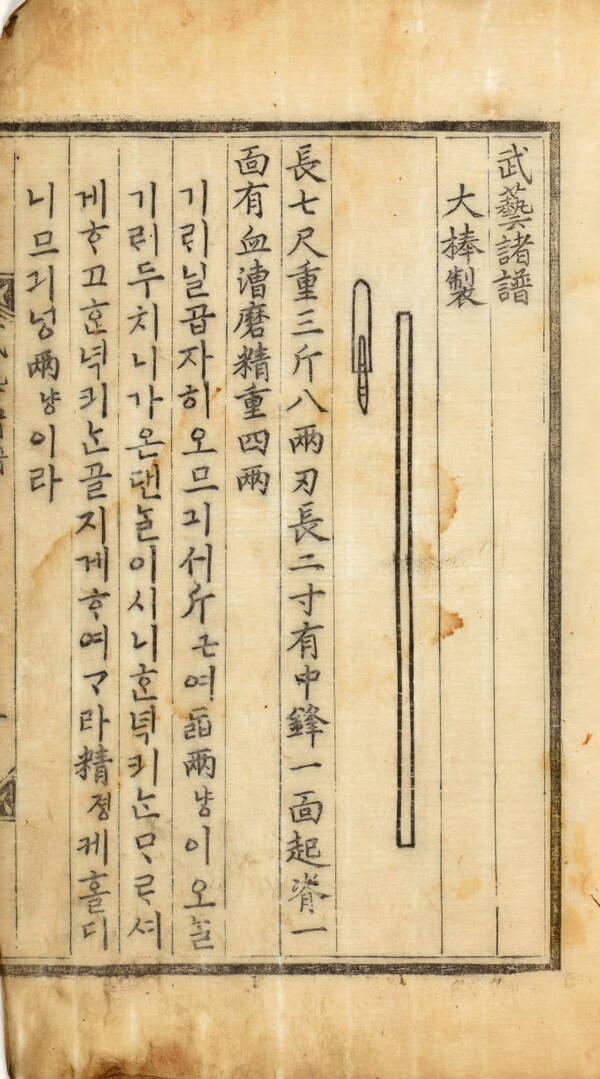 武藝諸譜
大棒製
長七尺重三斤八兩刃長二寸有中鋒一面起脊一
面有血漕磨精重四兩
기릐닐곱자히오므긔서斤근여듧兩냥이오ᄂᆞᆯ
기릐두치니가온댄ᄂᆞᆯ이시니ᄒᆞᆫ녁킈ᄂᆞᆫᄆᆞᄅᆞ셔
게ᄒᆞ고ᄒᆞᆫ녁킈ᄂᆞᆫ골지게ᄒᆞ여ᄀᆞ라精졍케ᄒᆞᆯ디
니므긔넝兩냥이라